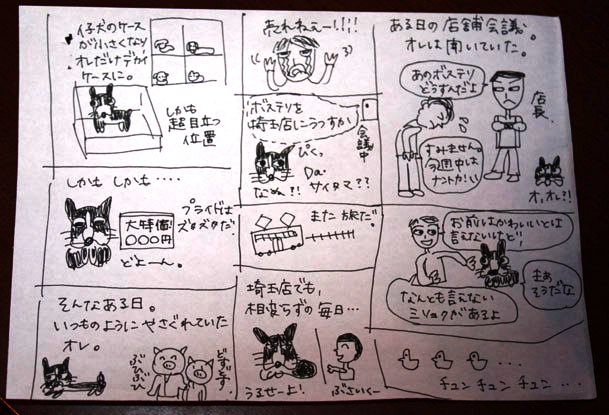 ある日の店舗会議。
オレは聞いていた。
あのボステリ
どうすんだよ
店長
すみません。
今週中は
ナントカ!!
オ、オレ?!
お前はかわいいとは
言えないけど!
まあ
そうだな
なんとも言えない
ミリョクがあるよ
チュン チュン チュン…
売れねぇー!!!
ボステリを
埼玉店にうつすか
会議中
ぴくっ
Da・
サイタマ??
なぬ?!
また旅だ。
埼玉店でも、
相変らずの毎日…
うるせーよ!
ぶさいくー
仔犬のケース
が小さくなり
オレだけデカイ
ケースに。
しかも
超目立つ
位置
しかも しかも‥‥
大特価!
〇〇〇円
プライドは
ズタズタだ
どよーん。
そんなある日。
いつものようにやさぐれていた
オレ。
どすどす
ぶひぶひ